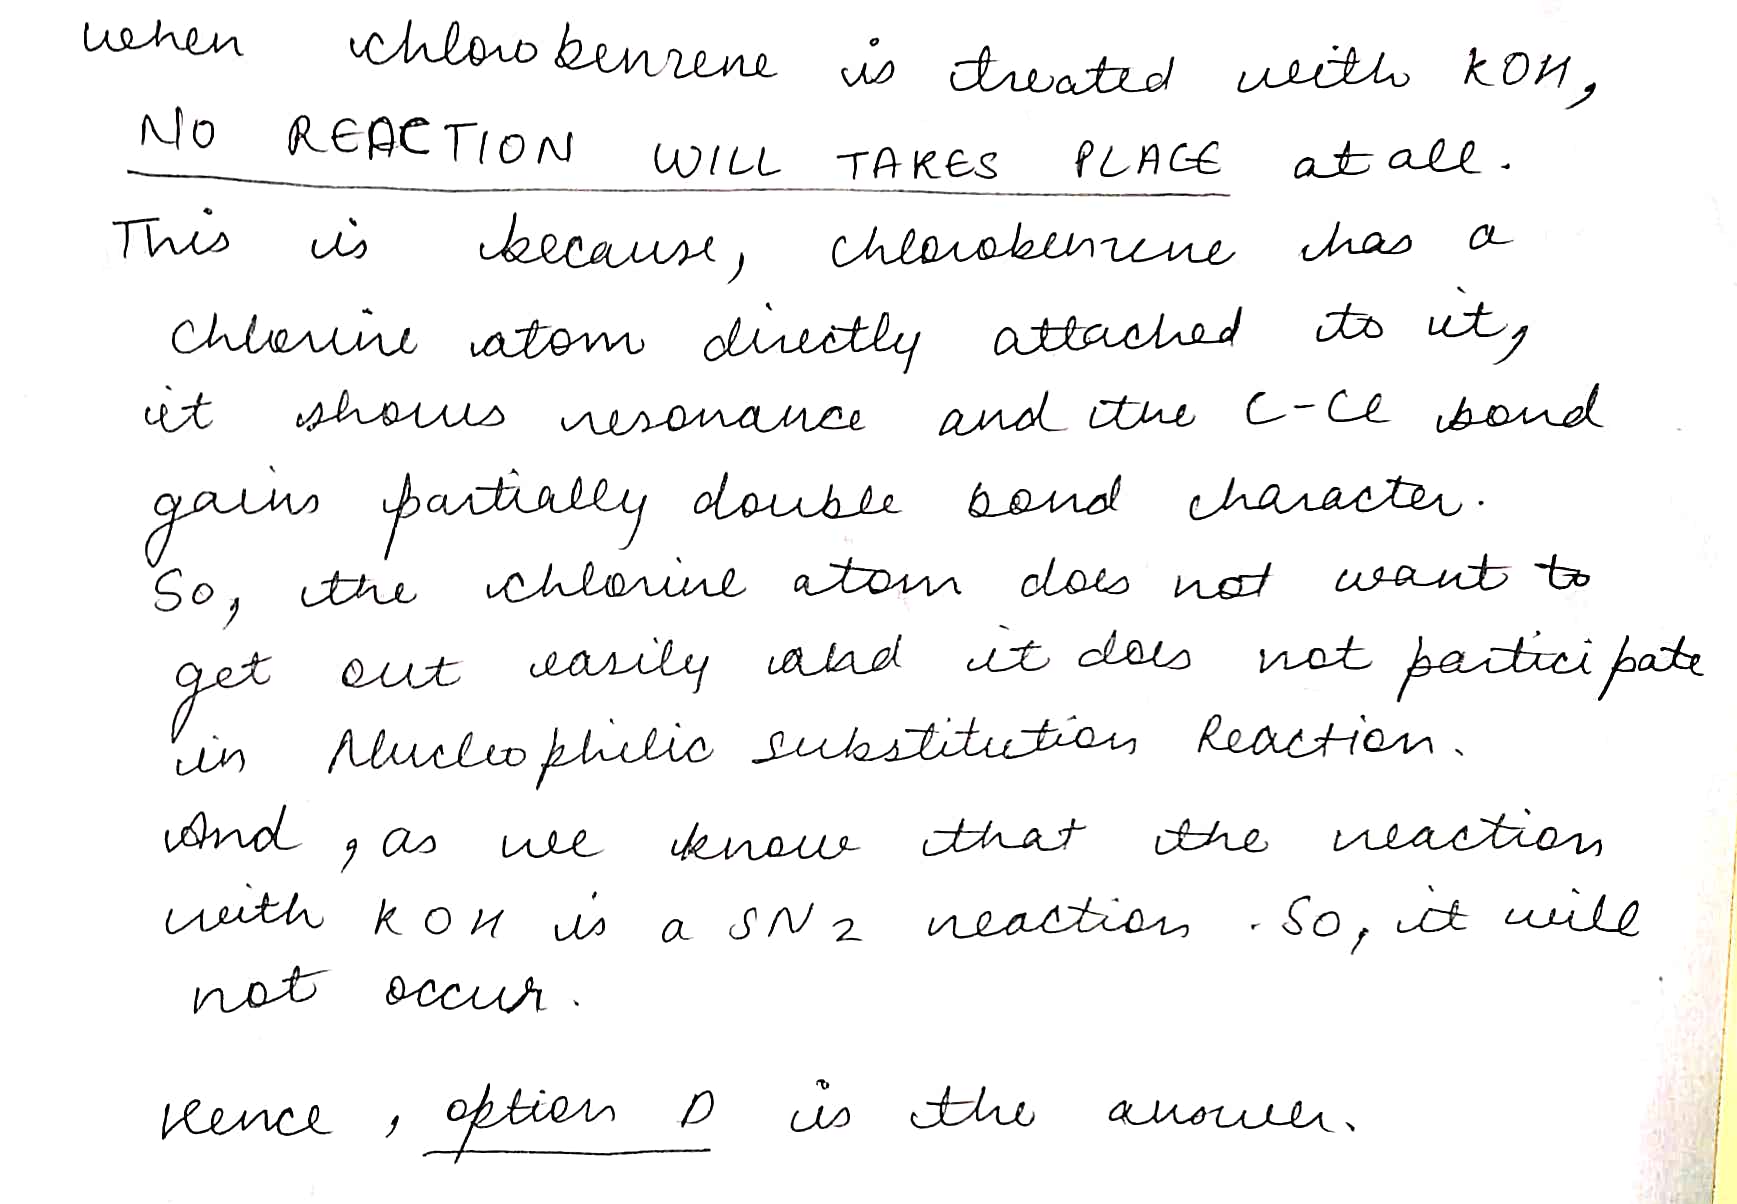 when chlorobenzene is treated with KOH,
NO REACTION WILL TAKES PLACE at all.
This is because, chlorobenzene has a
chlorine atom directly attached to it,
it shows resonance and the C-Cl bond
gains partially double bond character.
So, the chlorine atom does not want to
get out easily and it does not participate
in Nucleophilic substitution Reaction.
And, as we know that the reaction
with KOH is a SN2 reaction. So, it will
not occur.
Hence, option D is the answer.